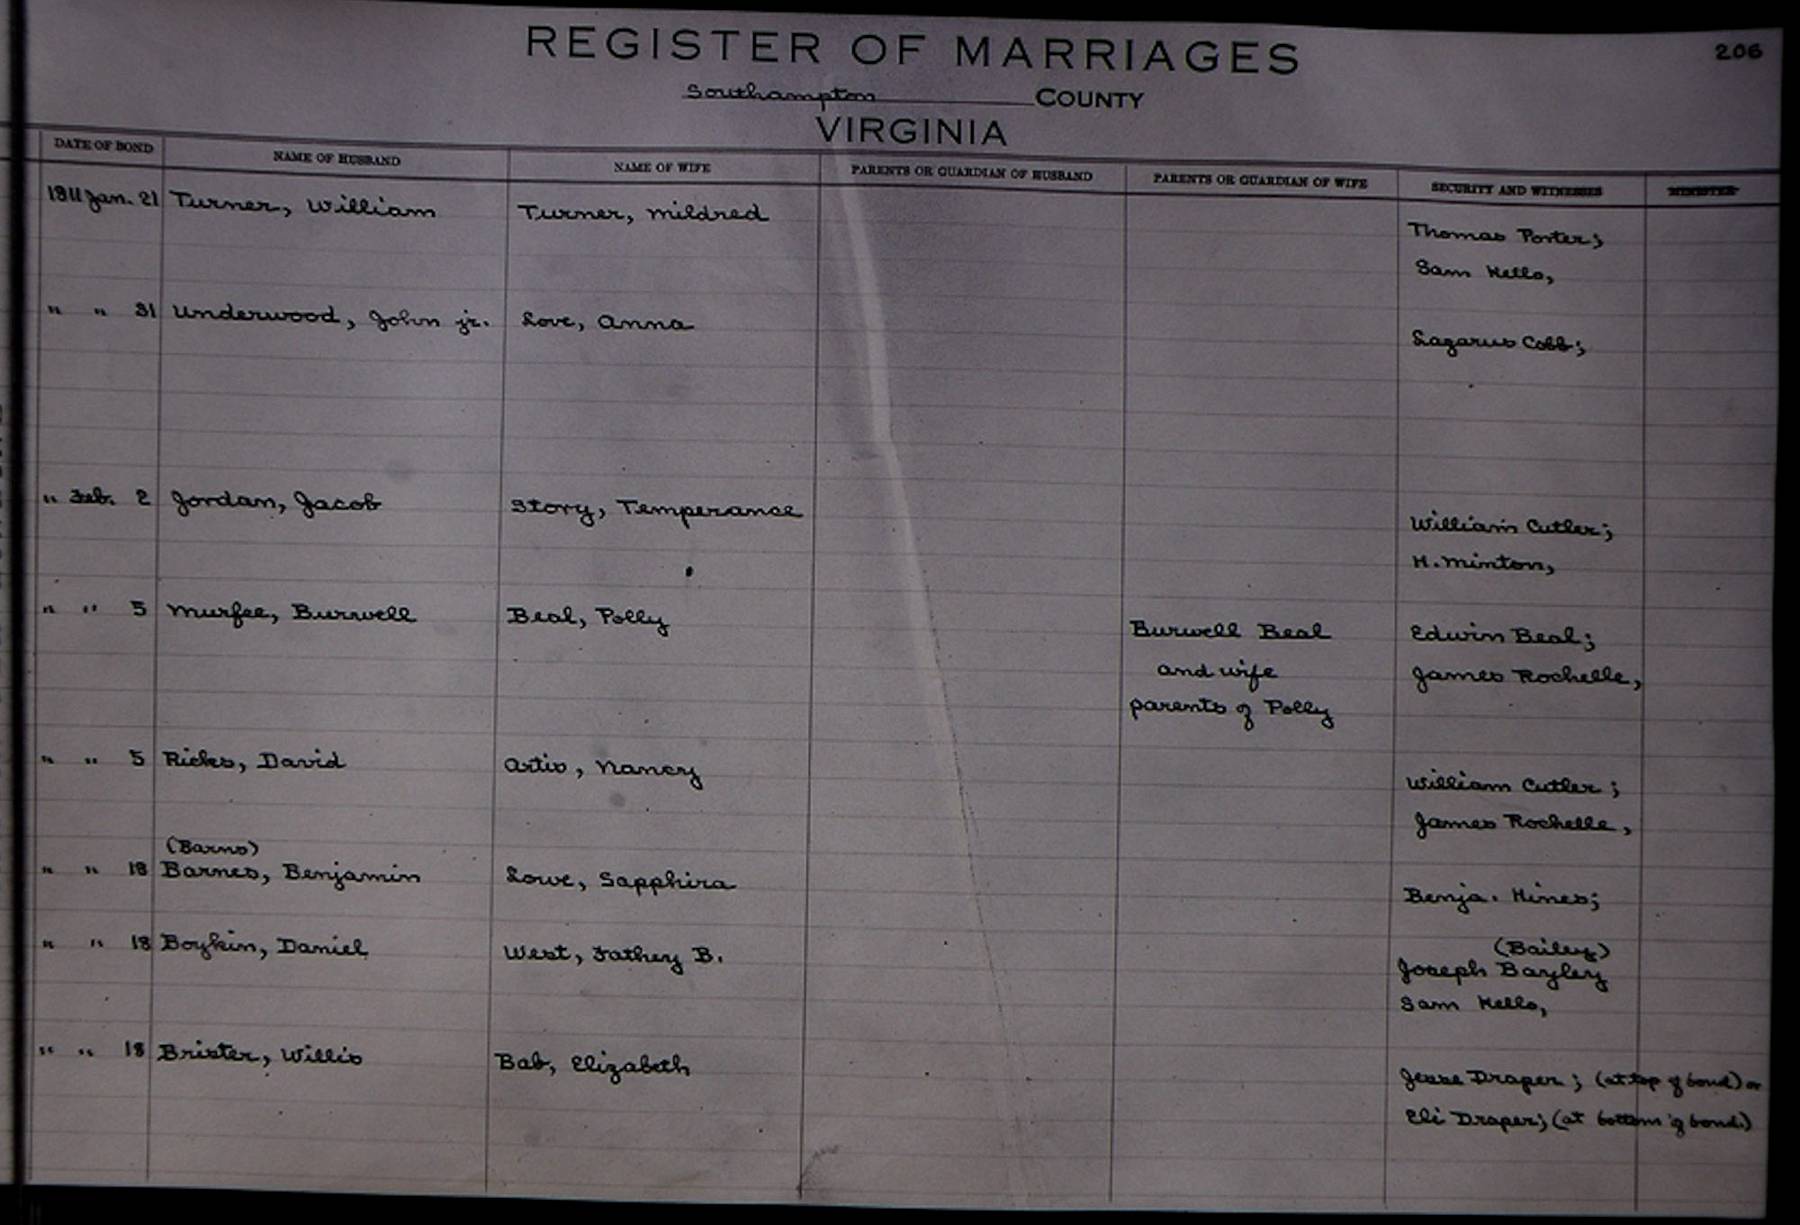 206
REGISTER OF MARRIAGES
Southampton COUNTY
VIRGINIA
DATE OF BOND NAME OF HUSBAND NAME OF WIFE PARENTS OR GUARDIAN OF HUSBAND PARENTS OR GUARDIAN OF WIFE SECURITY AND WITNESSES MINISTER
1811 Jan. 21 Turner, William Turner, Mildred Thomas Porter;
Sam Kello,
" " 31 Underwood, John jr. Love, Anna Lazarus Cobb;
" Feb. 2 Jordan, Jacob Story, Temperance William Cutler;
H. Minton,
" " 5 Murfee, Burwell Beal, Polly Burwell Beal Edwin Beal;
and wife James Rochelle,
parents of Polly
" " 5 Ricks, David Artis, Nancy William Cutler;
James Rochelle,
(Barns)
" " 18 Barnes, Benjamin Lowe, Sapphira Benja. Hines;
(Bailey)
" " 18 Boykin, Daniel West, Fathey B. Joseph Bayley
Sam Kello,
" " 18 Brister, Willis Bab, Elizabeth Jesse Draper; (at top of bond) or
Eli Draper; (at bottom of bond.)